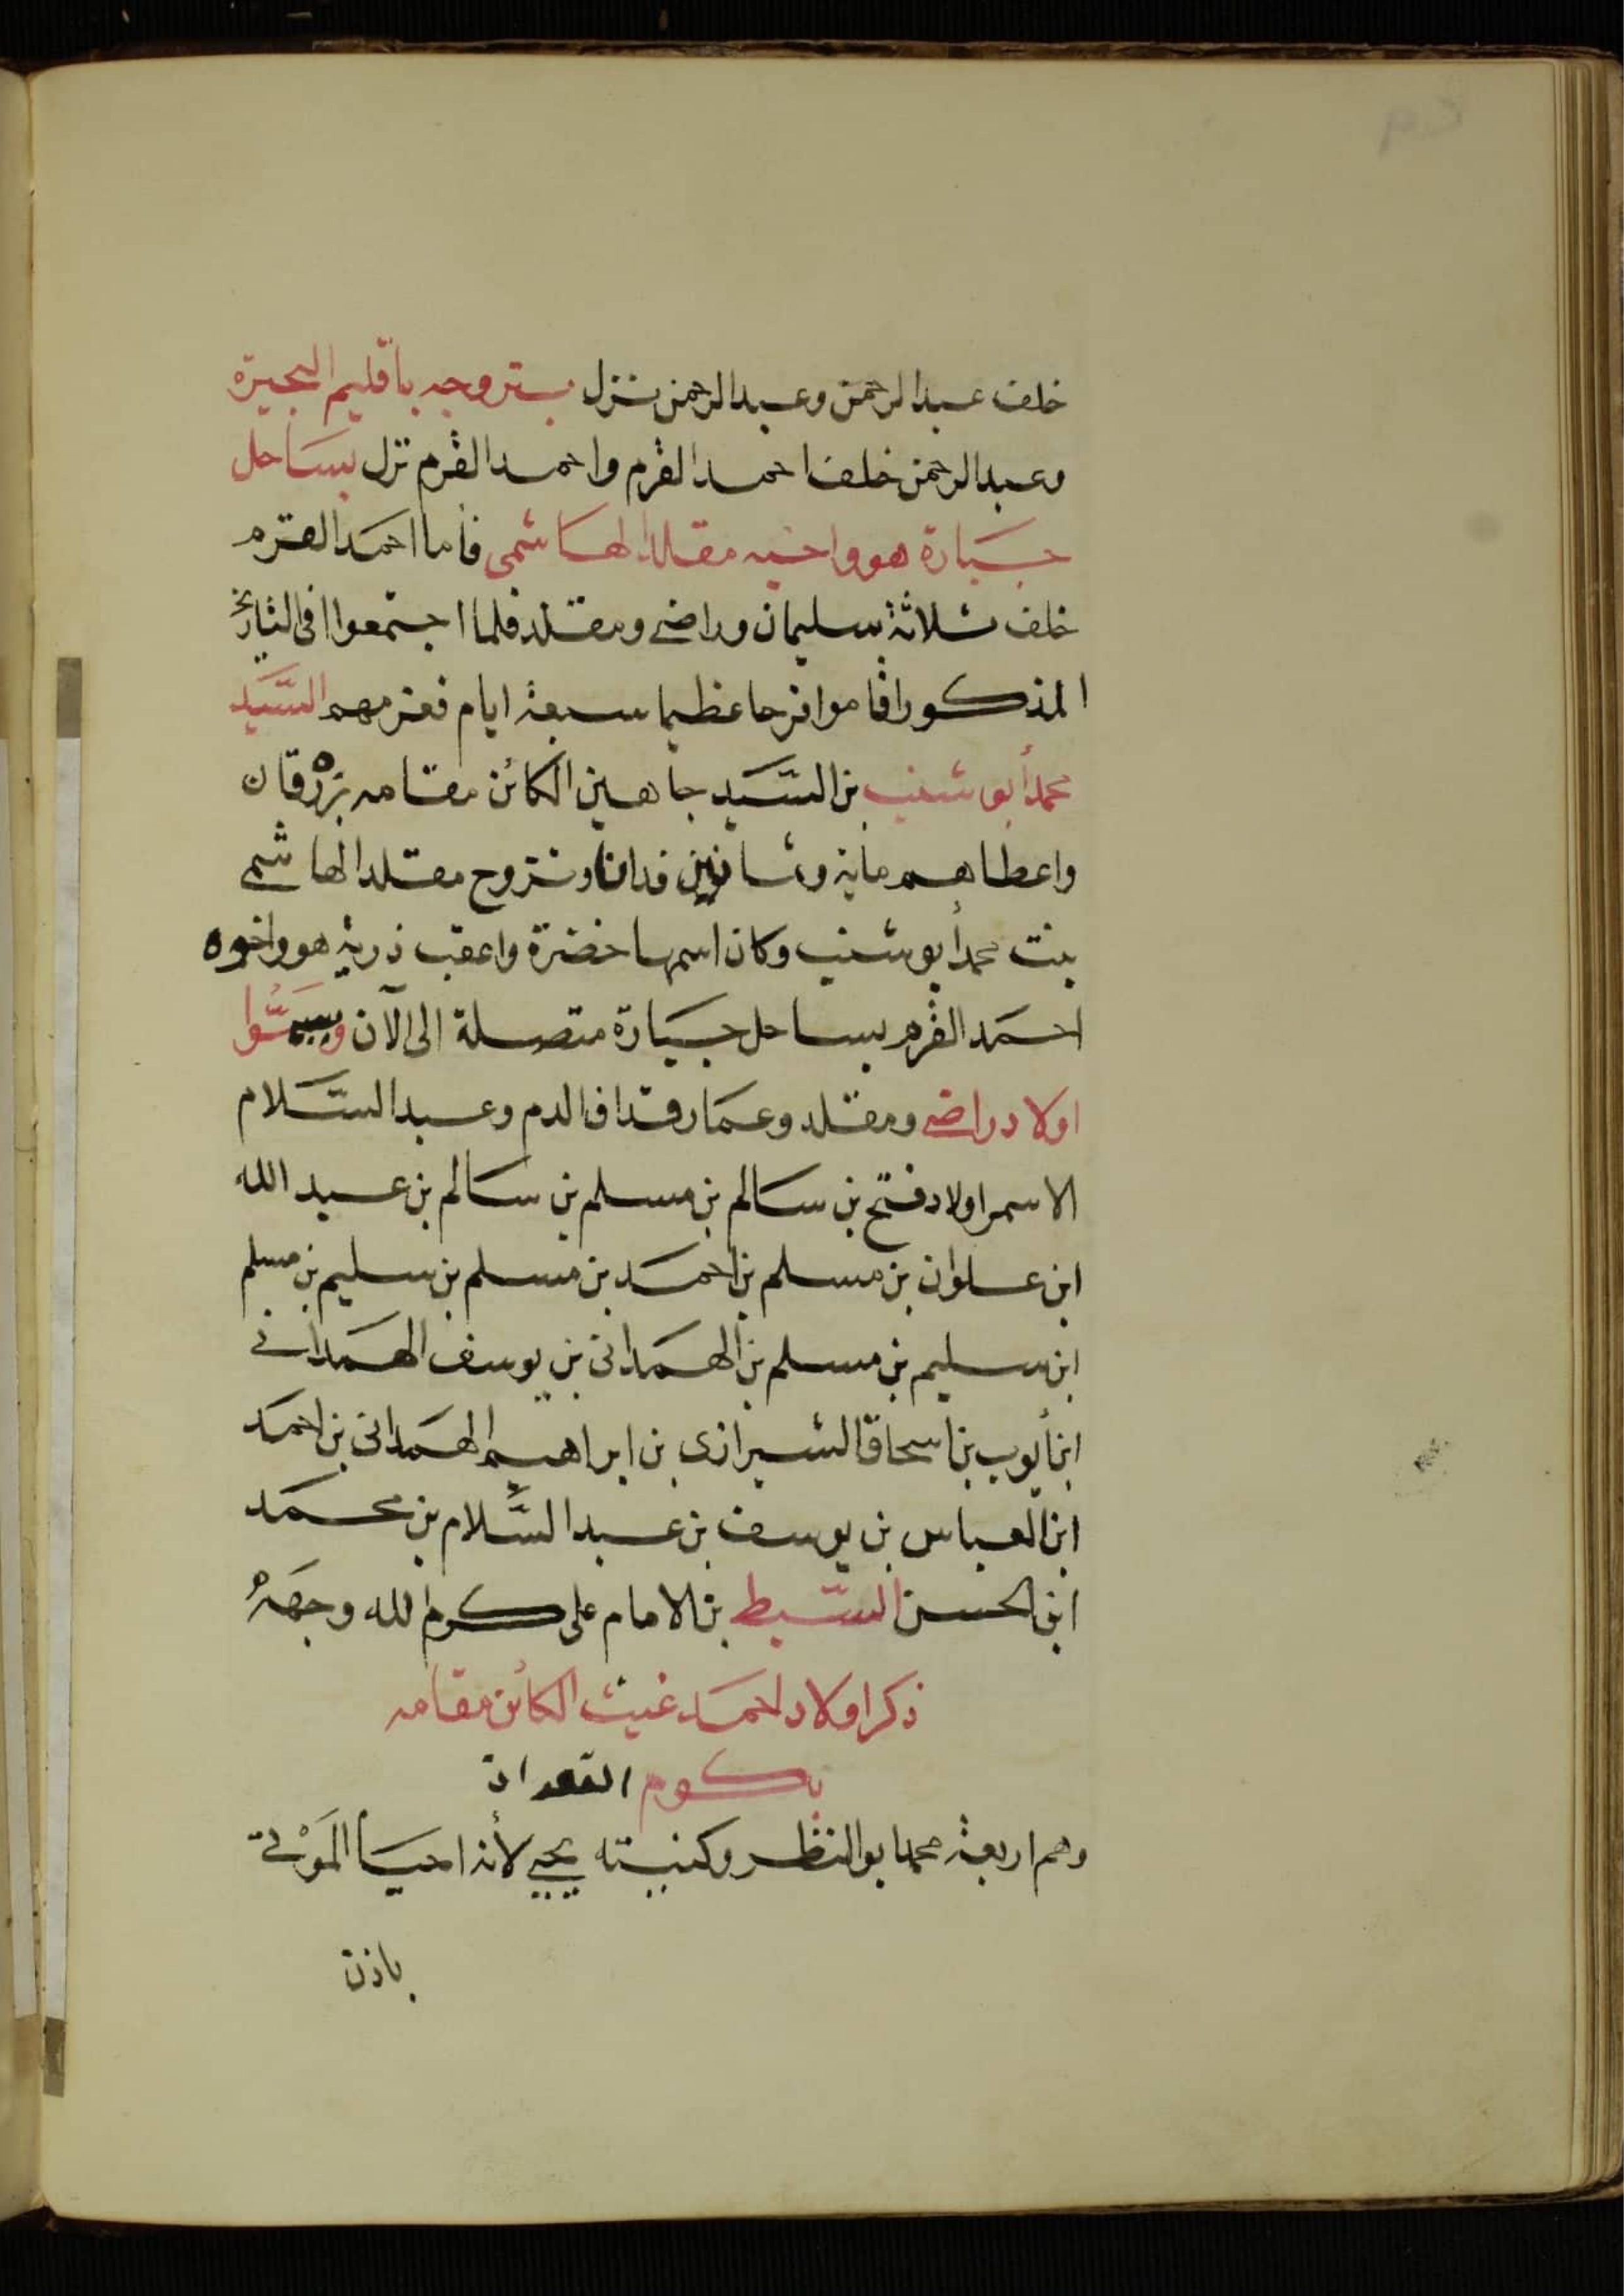 خلف عبد الرحمن وعبد الرحمن نزل بتروجه باقليم البحيرة
وعبد الرحمن خلف احمد القرم واحمد القرم نزل بساحل
جبارة هو واخيه مقلد الهاشمى فأما احمد القرم
خلف ثلاثة سليمان وراضى ومقلد فلما اجتمعوا فى التاريخ
المذكور اقاموا فرحا عظيما سبعة ايام فعزمهم السَّيد
محمد أبو شنب بن السَّيد جاهين الكائن مقامه بَرزْقان
واعطاهم ماية وثمانين فدانا وتزوج مقلد الهاشمى
بنت محمد أبو شنب وكان اسمها خضرة واعقب ذرية هو واخوه
احمد القرم بساحل جبارة متصلة الى الآن وسمُّوا
اولاد راضى ومقلد وعمار قداف الدم وعبد السَّلام
الاسمر اولاد فتح بن سالم بن مسلم بن سالم بن عبد الله
ابن علوان بن مسلم بن احمد بن مسلم بن سليم بن مسلم
ابن سليم بن مسلم بن الهمدانى بن يوسف الهمدانى
ابن أيوب بن اسحاق الشيرازى بن ابراهيم الهمدانى بن احمد
ابن العباس بن يوسف بن عبد السَّلام بن محمد
ابن الحسن السَّبط بن الامام على كرم الله وجهَهُ
ذكر اولاد احمد غيث الكائن مقامه
بكوم
وهم اربعة محمد ابو النظر وكنيته يحيى لأنه احيا المَوْتى
باذن